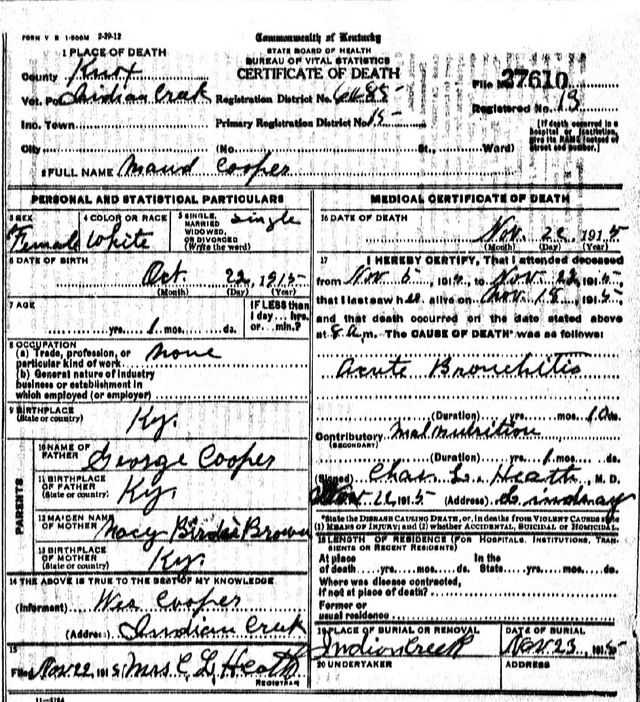 FORM V S 1-500M 2-29-12
Commonwealth of Kentucky
STATE BOARD OF HEALTH
BUREAU OF VITAL STATISTICS
CERTIFICATE OF DEATH
1 PLACE OF DEATH
County Knox
Vot. Pct. Indian Creek Registration District No. 6685
File No. 27610
Inc. Town Primary Registration District No. 15
Registered No. 13
City (No. St., Ward)
[If death occurred in a hospital or institution, give its NAME instead of street and number.]
2 FULL NAME Maud Cooper
PERSONAL AND STATISTICAL PARTICULARS
3 SEX Female
4 COLOR OR RACE White
5 SINGLE, MARRIED WIDOWED, OR DIVORCED (Write the word) Single
6 DATE OF BIRTH
Oct 22, 1915
(Month) (Day) (Year)
7 AGE
yrs. 1 mos. ds.
IF LESS than 1 day ... hrs. or ... min.?
8 OCCUPATION
(a) Trade, profession, or particular kind of work none
(b) General nature of industry
business or establishment in
which employed (or employer)
9 BIRTHPLACE
(State or country) Ky.
PARENTS
10 NAME OF FATHER George Cooper
11 BIRTHPLACE OF FATHER (State or country) Ky.
12 MAIDEN NAME OF MOTHER Birdie Brown
13 BIRTHPLACE OF MOTHER (State or country) Ky.
14 THE ABOVE IS TRUE TO THE BEST OF MY KNOWLEDGE
(Informant) Wes Cooper
(Address) Indian Creek
15
Filed Nov. 22 1915 Mrs C. L. Heath
REGISTRAR
11-3184
MEDICAL CERTIFICATE OF DEATH
16 DATE OF DEATH
Nov. 22 1915
(Month) (Day) (Year)
17 I HEREBY CERTIFY, That I attended deceased
from Nov 5, 1915, to Nov 22 1915,
that I last saw her alive on Nov 18, 1915,
and that death occurred on the date stated above
at 8 a.m. The CAUSE OF DEATH* was as follows:
Acute Bronchitis
(Duration) yrs. mos. ds.
Contributory Malnutrition
(SECONDARY)
(Duration) yrs. 1 mos. ds.
(Signed) Chas. L. Heath M. D.
Nov. 22 1915 (Address) Lindsay
*State the DISEASE CAUSING DEATH, or, in deaths from VIOLENT CAUSES state
(1) MEANS OF INJURY; and (2) whether ACCIDENTAL, SUICIDAL or HOMICIDAL.
18 LENGTH OF RESIDENCE (FOR HOSPITALS, INSTITUTIONS, TRANSIENTS OR RECENT RESIDENTS)
At place In the
of death yrs. mos. ds. State yrs. mos. ds.
Where was disease contracted,
if not at place of death?
Former or
usual residence
19 PLACE OF BURIAL OR REMOVAL
Indian Creek
DATE OF BURIAL
Nov. 23, 1915
20 UNDERTAKER
ADDRESS